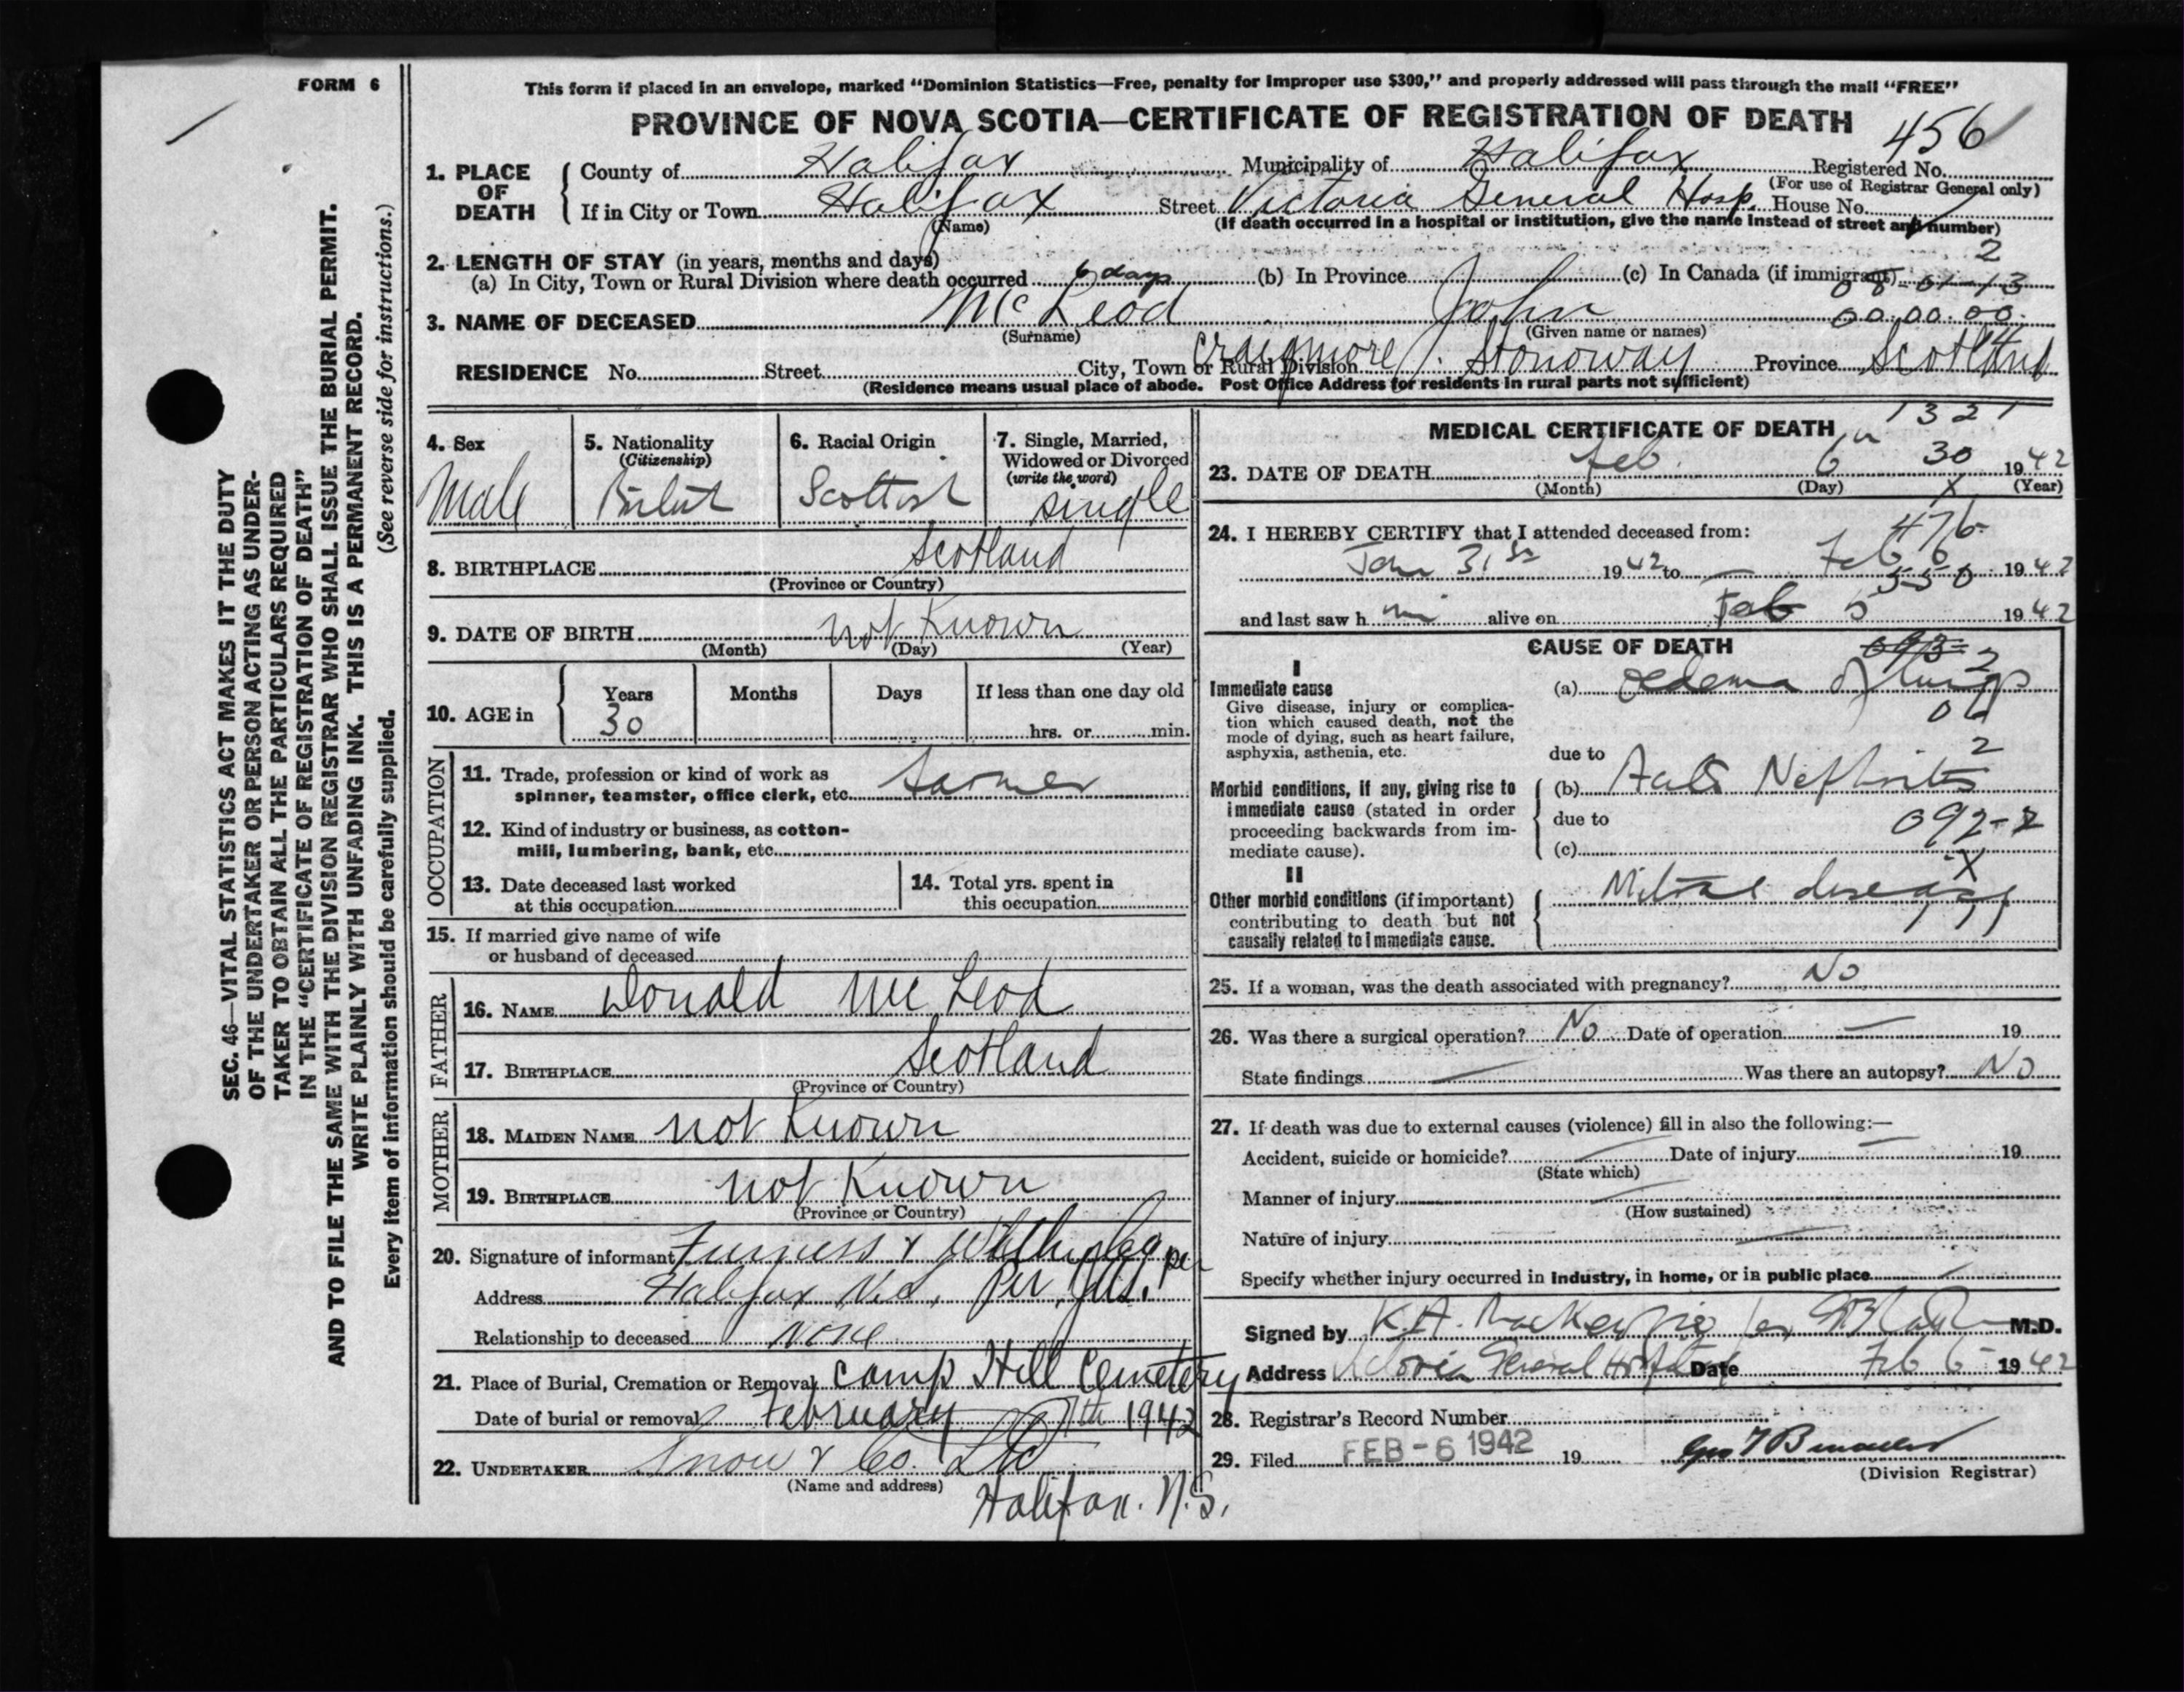 FORM 6
This form if placed in an envelope, marked "Dominion Statistics—Free, penalty for improper use $300," and properly addressed will pass through the mail "FREE"
PROVINCE OF NOVA SCOTIA—CERTIFICATE OF REGISTRATION OF DEATH
456
1. PLACE OF DEATH
County of Halifax Municipality of Halifax Registered No.
(For use of Registrar General only)
If in City or Town Halifax Street Victoria General Hosp. House No.
(Name) (If death occurred in a hospital or institution, give the name instead of street and number)
2
2. LENGTH OF STAY (in years, months and days)
(a) In City, Town or Rural Division where death occurred 6 days (b) In Province (c) In Canada (if immigrant)
3. NAME OF DECEASED McLeod John 00.00.00.
(Surname) (Given name or names)
RESIDENCE No. Street City, Town or Rural Division Craigmore Stonoway Province Scotland
(Residence means usual place of abode. Post Office Address for residents in rural parts not sufficient)
4. Sex
Male
5. Nationality
(Citizenship)
6. Racial Origin
Scottish
7. Single, Married,
Widowed or Divorced
(write the word)
single
8. BIRTHPLACE Scotland
(Province or Country)
9. DATE OF BIRTH not Known
(Month) (Day) (Year)
10. AGE in
Years Months Days If less than one day old
30
hrs. or min.
OCCUPATION
11. Trade, profession or kind of work as
spinner, teamster, office clerk, etc.
12. Kind of industry or business, as cotton-
mill, lumbering, bank, etc.
13. Date deceased last worked
at this occupation
14. Total yrs. spent in
this occupation
15. If married give name of wife
or husband of deceased
FATHER
16. NAME Donald McLeod
17. BIRTHPLACE Scotland
(Province or Country)
MOTHER
18. MAIDEN NAME not Known
19. BIRTHPLACE not Known
(Province or Country)
20. Signature of informant Furness &
Address Halifax N.S. Per
Relationship to deceased None
21. Place of Burial, Cremation or Removal Camp Hill Cemetery
Date of burial or removal February 7th 1942
22. UNDERTAKER Snow & Co. Ltd
(Name and address)
Halifax. N.S.
1321
MEDICAL CERTIFICATE OF DEATH
23. DATE OF DEATH Feb. 6 30 1942
(Month) (Day) (Year)
24. I HEREBY CERTIFY that I attended deceased from:
476
Jan 31st 1942 to Feb 6 1942
550
and last saw h im alive on Feb 5 1942
CAUSE OF DEATH
I
Immediate cause
Give disease, injury or complica-
tion which caused death, not the
mode of dying, such as heart failure,
asphyxia, asthenia, etc.
(a) Oedema of lungs
due to
Morbid conditions, if any, giving rise to
immediate cause (stated in order
proceeding backwards from im-
mediate cause).
(b) Nephritis
due to
092-2
(c)
II
Other morbid conditions (if important)
contributing to death but not
causally related to immediate cause.
Mitral disease
25. If a woman, was the death associated with pregnancy? No
26. Was there a surgical operation? No Date of operation — 19
State findings — Was there an autopsy? No
27. If death was due to external causes (violence) fill in also the following:—
Accident, suicide or homicide? Date of injury 19
(State which)
Manner of injury
(How sustained)
Nature of injury
Specify whether injury occurred in industry, in home, or in public place
Signed by K.A. MacKenzie M.D.
Address Victoria General Hospital Date Feb 6 1942
28. Registrar's Record Number
29. Filed FEB - 6 1942 19
(Division Registrar)
SEC. 46—VITAL STATISTICS ACT MAKES IT THE DUTY
OF THE UNDERTAKER OR PERSON ACTING AS UNDER-
TAKER TO OBTAIN ALL THE PARTICULARS REQUIRED
IN THE "CERTIFICATE OF REGISTRATION OF DEATH"
AND TO FILE THE SAME WITH THE DIVISION REGISTRAR WHO SHALL ISSUE THE BURIAL PERMIT.
WRITE PLAINLY WITH UNFADING INK. THIS IS A PERMANENT RECORD.
Every item of information should be carefully supplied. (See reverse side for instructions.)